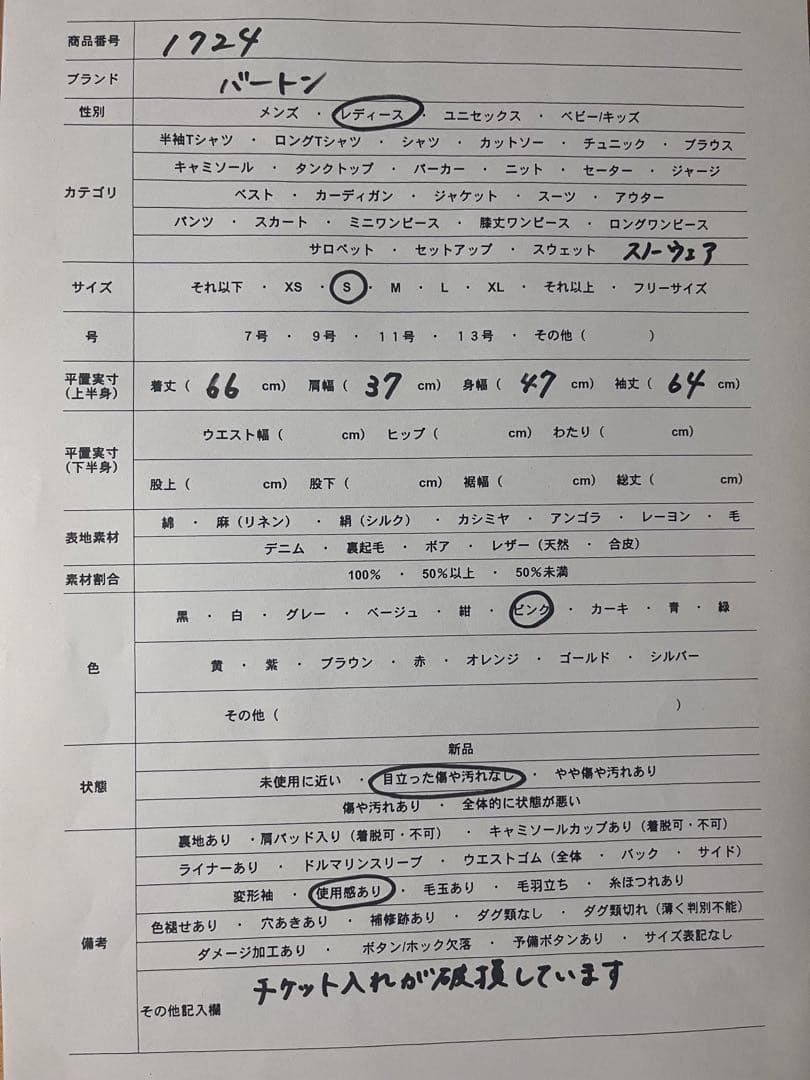 商品番号 1724
ブランド バートン
性別 メンズ ・ レディース ・ ユニセックス ・ ベビー/キッズ
カテゴリ
半袖Tシャツ ・ ロングTシャツ ・ シャツ ・ カットソー ・ チュニック ・ ブラウス
キャミソール ・ タンクトップ ・ パーカー ・ ニット ・ セーター ・ ジャージ
ベスト ・ カーディガン ・ ジャケット ・ スーツ ・ アウター
パンツ ・ スカート ・ ミニワンピース ・ 膝丈ワンピース ・ ロングワンピース
サロペット ・ セットアップ ・ スウェット スノーウェア
サイズ それ以下 ・ XS ・ S ・ M ・ L ・ XL ・ それ以上 ・ フリーサイズ
号 7号 ・ 9号 ・ 11号 ・ 13号 ・ その他（ ）
平置実寸
（上半身）
着丈（ 66 cm） 肩幅（ 37 cm） 身幅（ 47 cm） 袖丈（ 64 cm）
平置実寸
（下半身）
ウエスト幅（ cm） ヒップ（ cm） わたり（ cm）
股上（ cm） 股下（ cm） 裾幅（ cm） 総丈（ cm）
表地素材
綿 ・ 麻（リネン） ・ 絹（シルク） ・ カシミヤ ・ アンゴラ ・ レーヨン ・ 毛
デニム ・ 裏起毛 ・ ボア ・ レザー（天然 ・ 合皮）
素材割合 100% ・ 50%以上 ・ 50%未満
色
黒 ・ 白 ・ グレー ・ ベージュ ・ 紺 ・ ピンク ・ カーキ ・ 青 ・ 緑
黄 ・ 紫 ・ ブラウン ・ 赤 ・ オレンジ ・ ゴールド ・ シルバー
その他（ ）
状態
新品
未使用に近い ・ 目立った傷や汚れなし ・ やや傷や汚れあり
傷や汚れあり ・ 全体的に状態が悪い
備考
裏地あり ・肩パッド入り（着脱可・不可） ・ キャミソールカップあり（着脱可・不可）
ライナーあり ・ ドルマリンスリーブ ・ ウエストゴム（全体 ・ バック ・ サイド）
変形袖 ・ 使用感あり ・ 毛玉あり ・ 毛羽立ち ・ 糸ほつれあり
色褪せあり ・ 穴あきあり ・ 補修跡あり ・ ダグ類なし ・ ダグ類切れ（薄く判別不能）
ダメージ加工あり ・ ボタン/ホック欠落 ・ 予備ボタンあり ・ サイズ表記なし
その他記入欄 チケット入れが破損しています